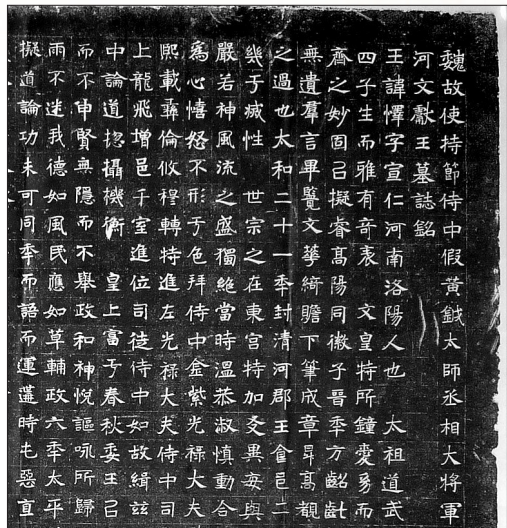 魏故使持節侍中假黃鉞太師丞相大將軍
河文獻王墓誌銘
王諱懌字宣仁河南洛陽人也 太祖道武
四子生而雅有奇表 文皇特所鐘愛豸而
齊之妙固㠯擬睿高陽同徽子晉秊方齠齔
無遺羣言畢覽文華綺贍下筆成章昇高觀
之過也太和二十一秊封清河郡王食邑二
幾于滅性 世宗之在東宮特加友異每與
嚴若神風流之盛獨絶當時溫恭淑慎動合
爲心憘怒不形于色拜侍中金紫光祿大夫
熙載彝倫攸穆轉特進左光祿大夫侍中司
上龍飛增邑千室進位司徒侍中如故緝玆
中論道揔攝機衡 皇上富于春秋委王㠯
而不申賢無隱而不舉政和神悅謳咏所歸
雨不迷我德如風民應如草輔政六秊太平
擬道論功未可同秊而語而運遘時屯惡直